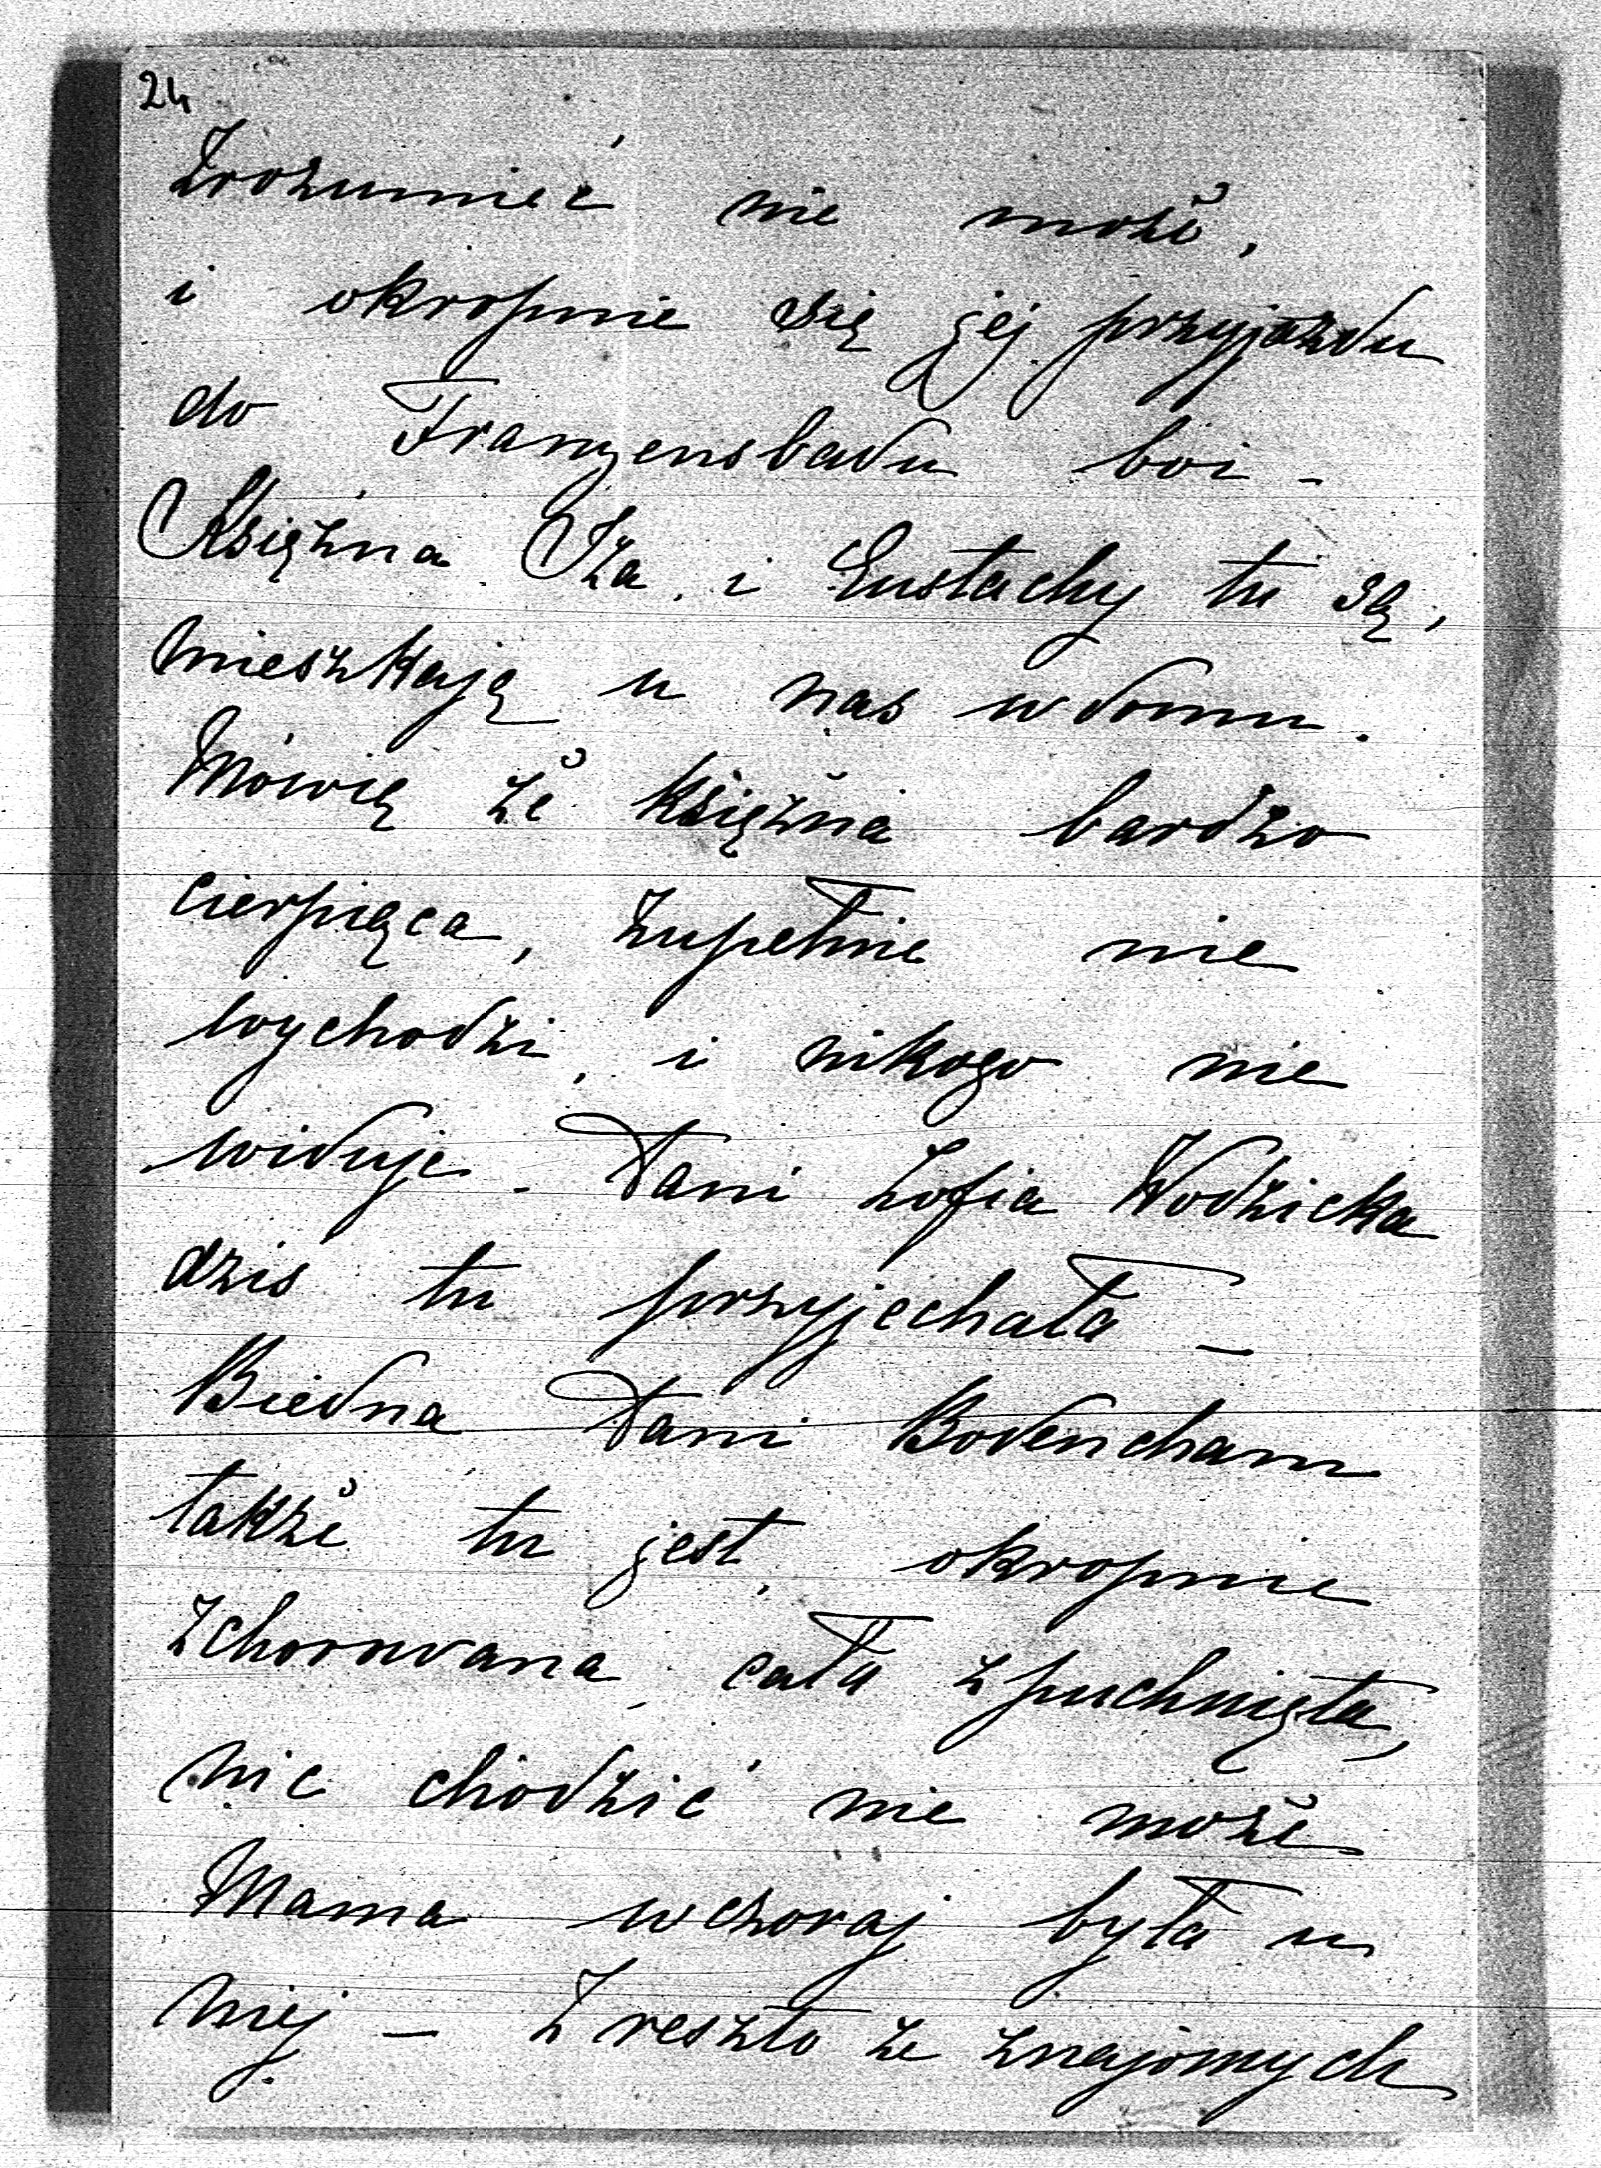 24
Zrozumieć nie może,
i okropnie się jej przyjazdu
do Franzensbadu boi -
Księżna Iza i Eustachy tu są,
mieszkają u nas w domu.
Mówią że księżna bardzo
cierpiąca, zupełnie nie
wychodzi, i nikogo nie
widuje - Pani Zofia Wodzicka
dzis tu przyjechała -
Biedna Pani Bodencham
także tu jest, okropnie
zchorowana, cała zpuchnięta,
nic chodzić nie może
Mama wczoraj była u
niej - Zreszto ze znajomych